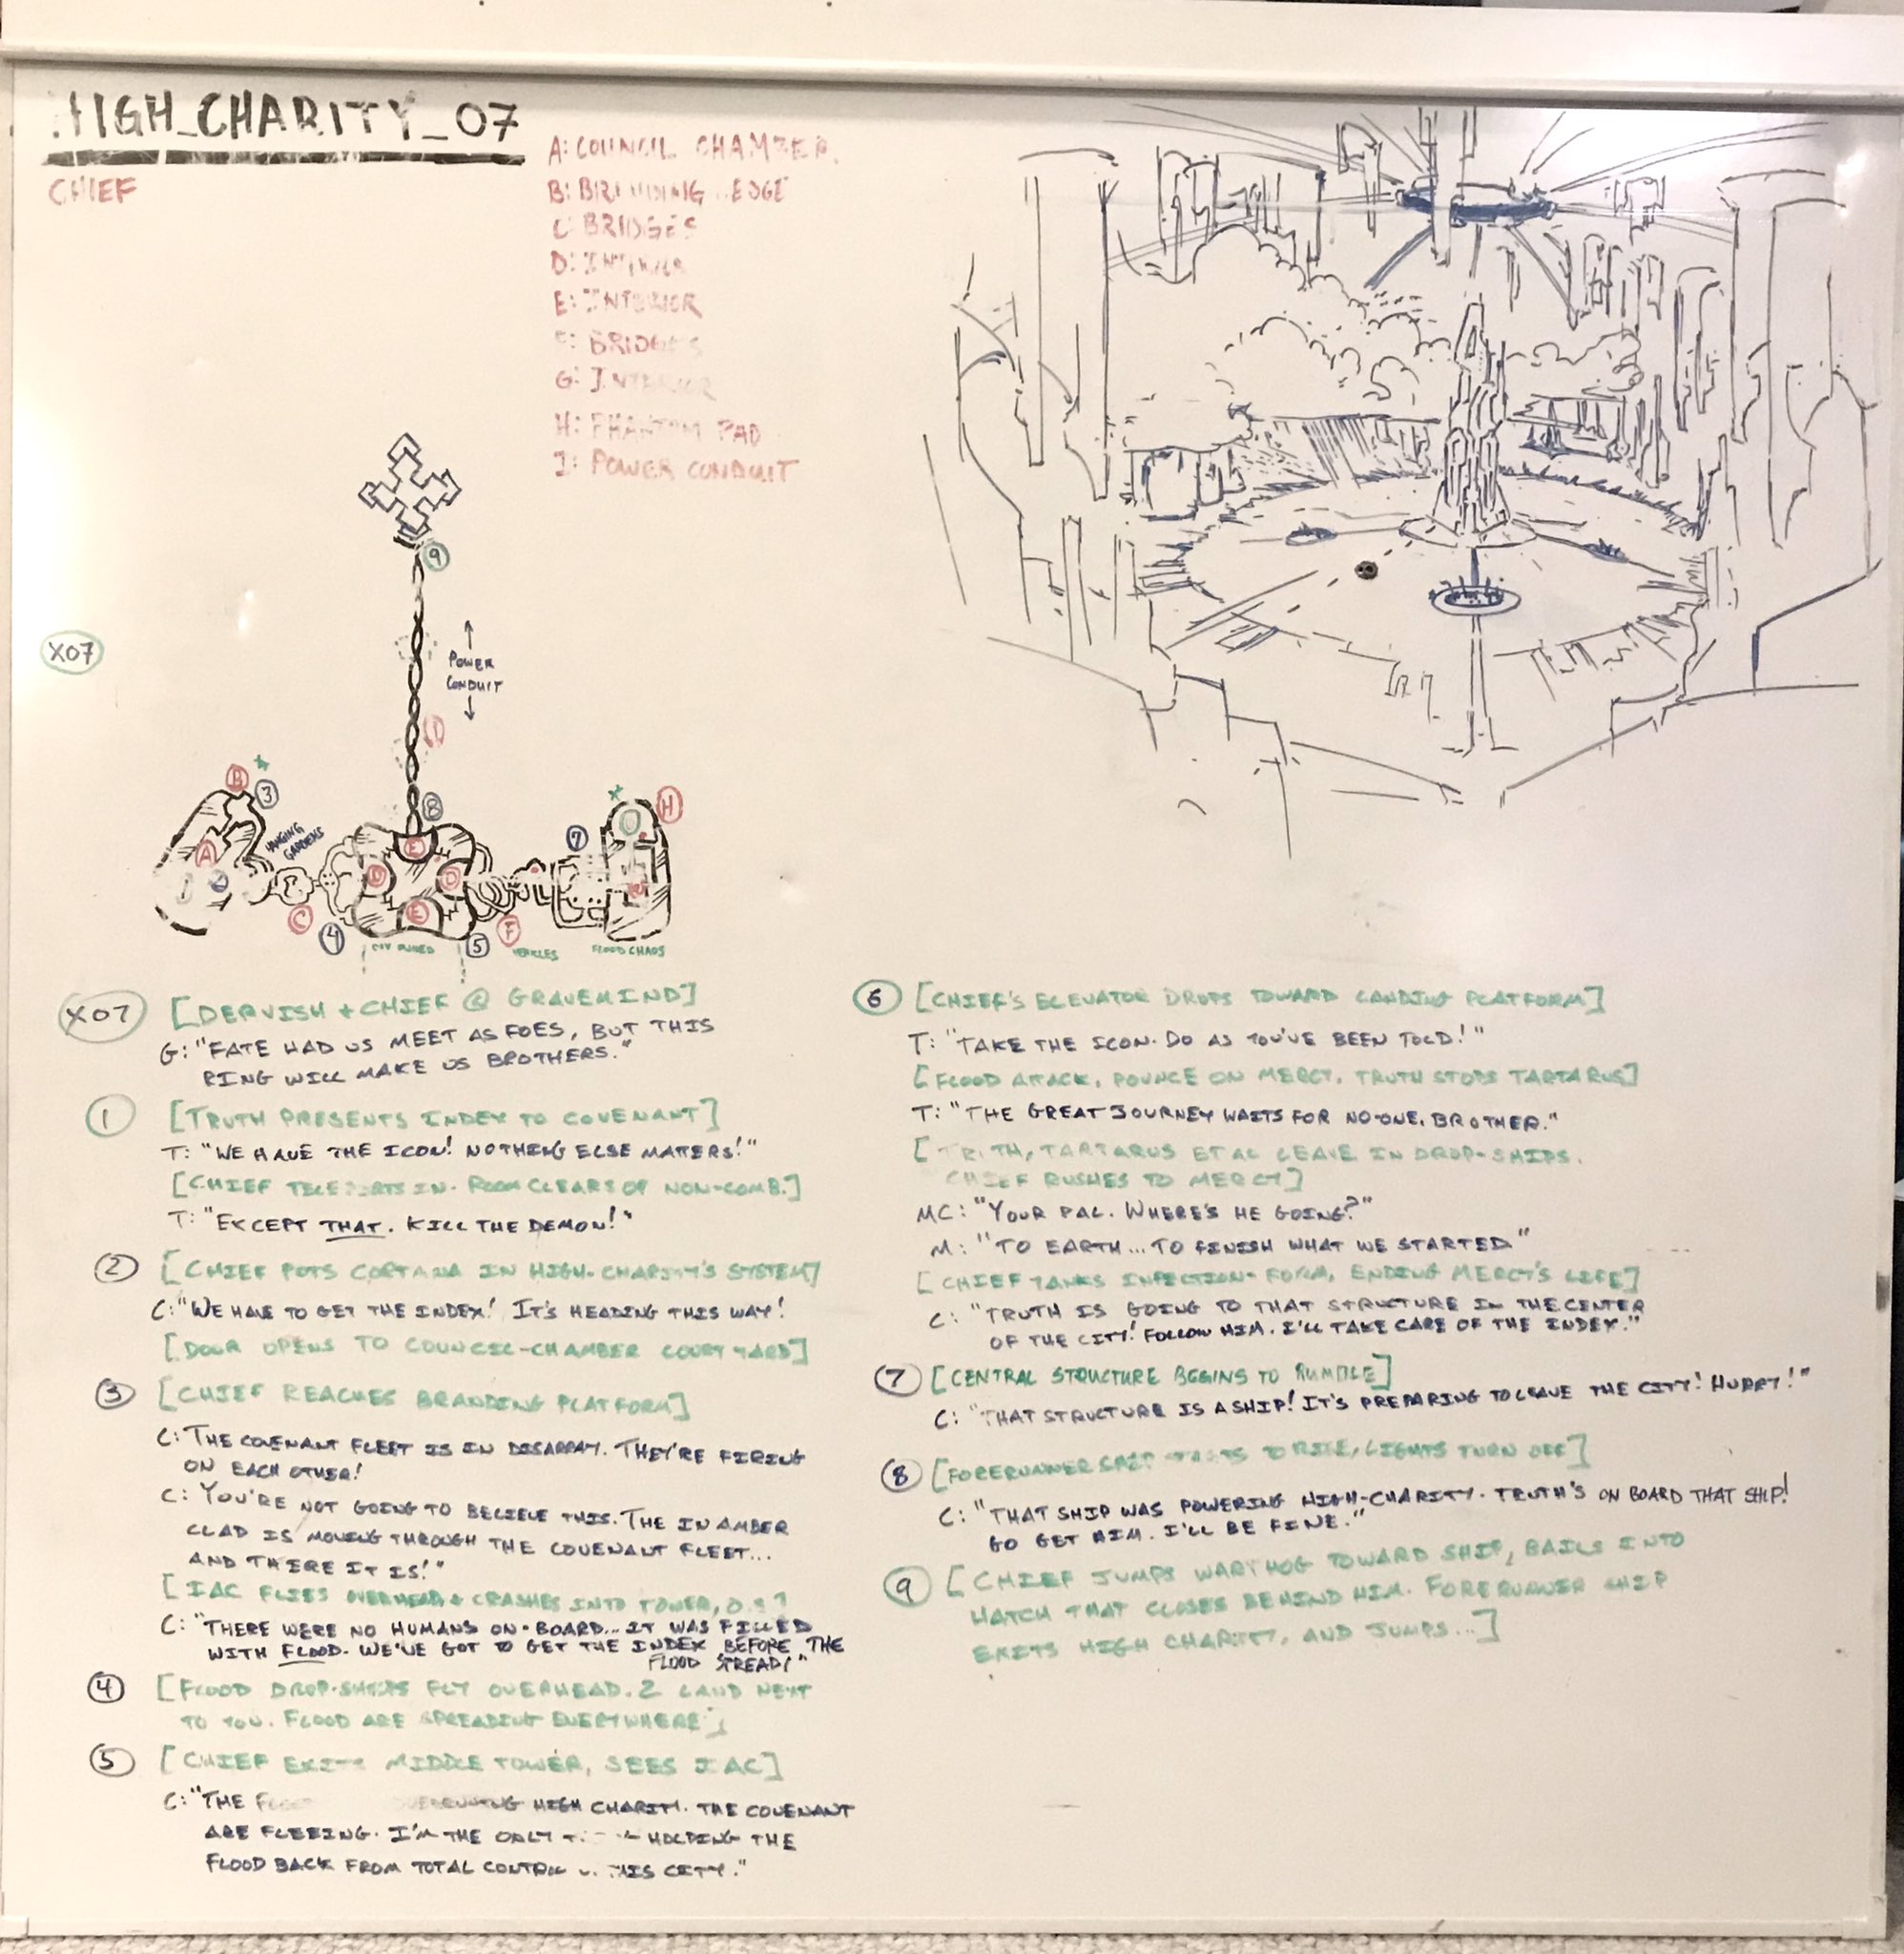 HIGH_CHARITY_07
CHIEF
A: COUNCIL CHAMBER
B: BRANDING LEDGE
C: BRIDGES
D:
E: INTERIOR
F: BRIDGES
G: INTERIOR
H: PHANTOM PAD
I: POWER CONDUIT
X07
9
↑
POWER
CONDUIT
↓
B
3
8
H
7
HANGING
GARDENS
A
E
D
D
C
E
F
4
5
FLOOD CHAOS
X07 [DERVISH + CHIEF @ GRAVEMIND]
G: "FATE HAD US MEET AS FOES, BUT THIS
RING WILL MAKE US BROTHERS."
1 [TRUTH PRESENTS INDEX TO COVENANT]
T: "WE HAVE THE ICON! NOTHING ELSE MATTERS!"
[CHIEF TELEPORTS IN. ROOM CLEARS OF NON-COMB.]
T: "EXCEPT THAT. KILL THE DEMON!"
2 [CHIEF PUTS CORTANA IN HIGH-CHARITY'S SYSTEM]
C: "WE HAVE TO GET THE INDEX! IT'S HEADING THIS WAY!
[DOOR OPENS TO COUNCIL-CHAMBER COURTYARD]
3 [CHIEF REACHES BRANDING PLATFORM]
C: THE COVENANT FLEET IS IN DISARRAY. THEY'RE FIRING
ON EACH OTHER!
C: YOU'RE NOT GOING TO BELIEVE THIS. THE IN AMBER
CLAD IS MOVING THROUGH THE COVENANT FLEET...
AND THERE IT IS!"
[IAC FLIES OVERHEAD & CRASHES INTO TOWER, O.S.]
C: "THERE WERE NO HUMANS ON-BOARD... IT WAS FILLED
WITH FLOOD. WE'VE GOT TO GET THE INDEX BEFORE THE
FLOOD SPREAD!"
4 [FLOOD DROP-SHIPS FLY OVERHEAD. 2 LAND NEXT
TO YOU. FLOOD ARE SPREADING EVERYWHERE]
5 [CHIEF EXITS MIDDLE TOWER, SEES IAC]
C: "THE OVERRUNNING HIGH CHARITY. THE COVENANT
ARE FLEEING. I'M THE ONLY HOLDING THE
FLOOD BACK FROM TOTAL CONTROL THIS CITY."
6 [CHIEF'S ELEVATOR DROPS TOWARD LANDING PLATFORM]
T: "TAKE THE ICON. DO AS YOU'VE BEEN TOLD!"
[FLOOD ATTACK, POUNCE ON MERCY. TRUTH STOPS TARTARUS]
T: "THE GREAT JOURNEY WAITS FOR NO-ONE, BROTHER."
[TRUTH, TARTARUS ET AL LEAVE IN DROP-SHIPS.
CHIEF RUSHES TO MERCY]
MC: "YOUR PAL. WHERE'S HE GOING?"
M: "TO EARTH... TO FINISH WHAT WE STARTED"
[CHIEF YANKS INFECTION-FORM, ENDING MERCY'S LIFE]
C: "TRUTH IS GOING TO THAT STRUCTURE IN THE CENTER
OF THE CITY! FOLLOW HIM. I'LL TAKE CARE OF THE INDEX."
7 [CENTRAL STRUCTURE BEGINS TO RUMBLE]
C: "THAT STRUCTURE IS A SHIP! IT'S PREPARING TO LEAVE THE CITY! HURRY!"
8 [FORERUNNER SHIP STARTS TO RISE, LIGHTS TURN OFF]
C: "THAT SHIP WAS POWERING HIGH-CHARITY. TRUTH'S ON BOARD THAT SHIP!
GO GET HIM. I'LL BE FINE."
9 [CHIEF JUMPS WARTHOG TOWARD SHIP, BAILS INTO
HATCH THAT CLOSES BEHIND HIM. FORERUNNER SHIP
EXITS HIGH CHARITY, AND JUMPS...]